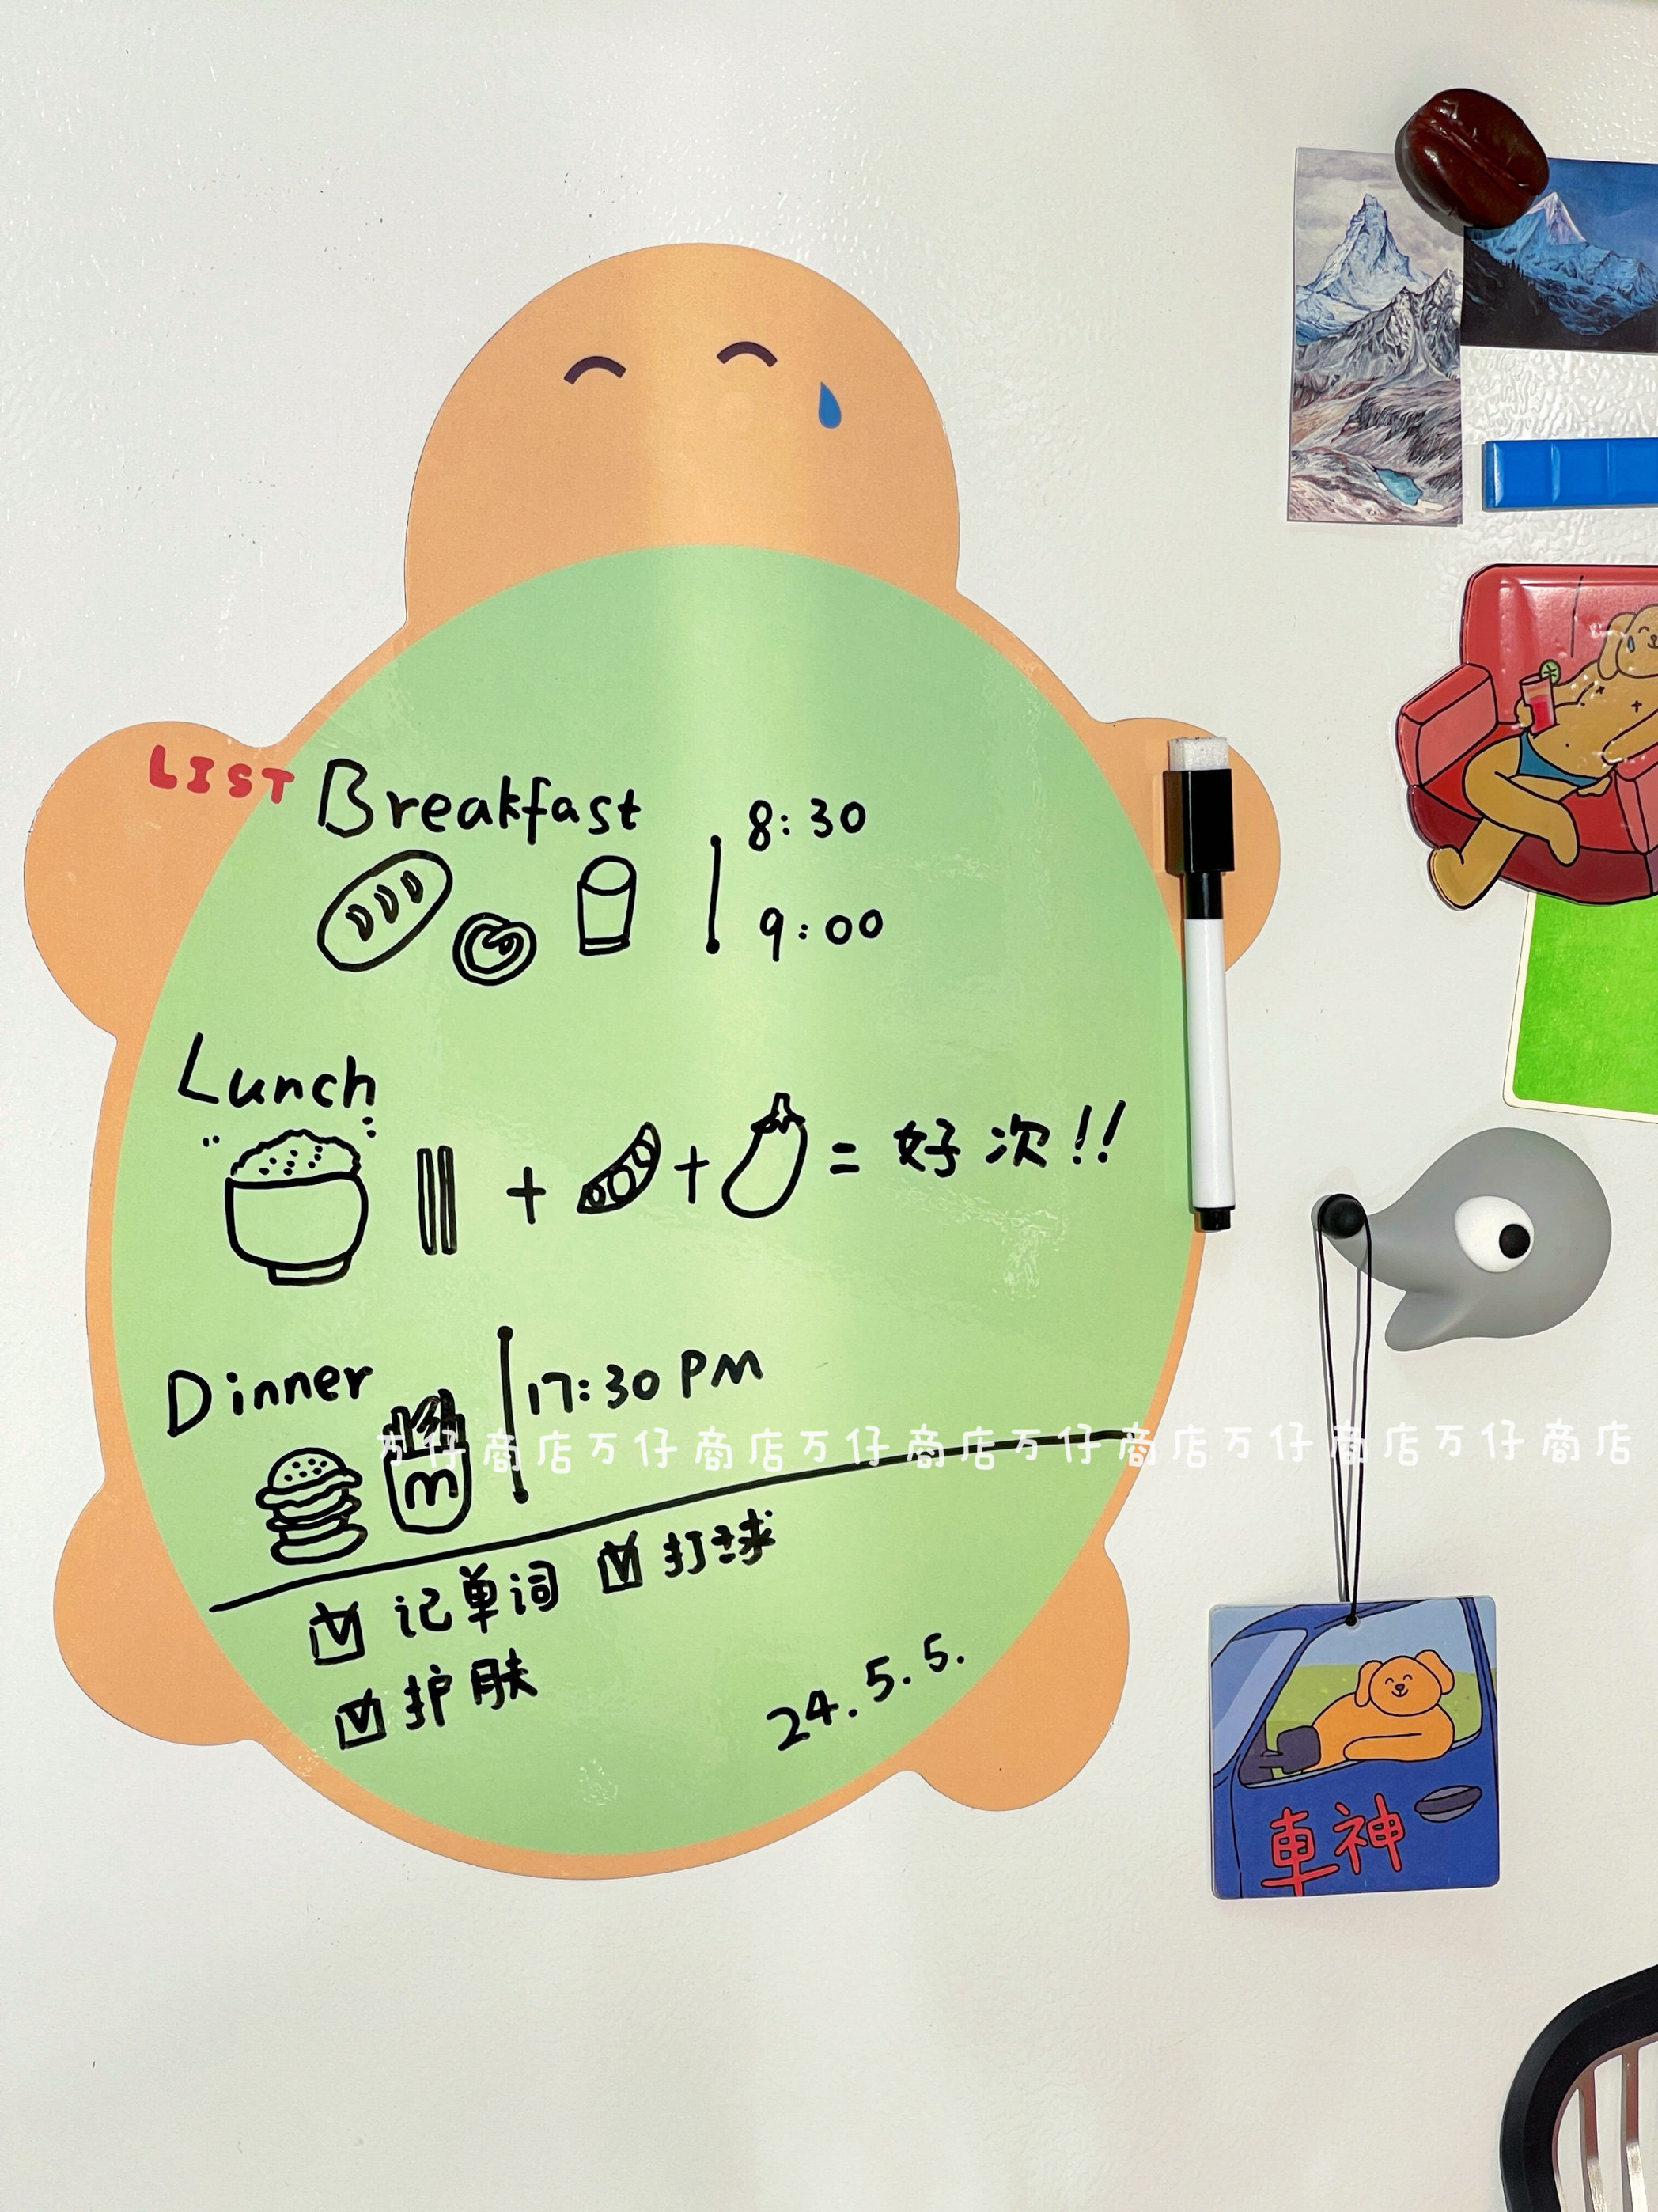 LIST
Breakfast
8:30
9:00
Lunch
+ + = 好次!!
Dinner
17:30 PM
m
万仔商店万仔商店万仔商店万仔商店万仔商店万仔商店
记单词 打球
护肤
24.5.5.
車神